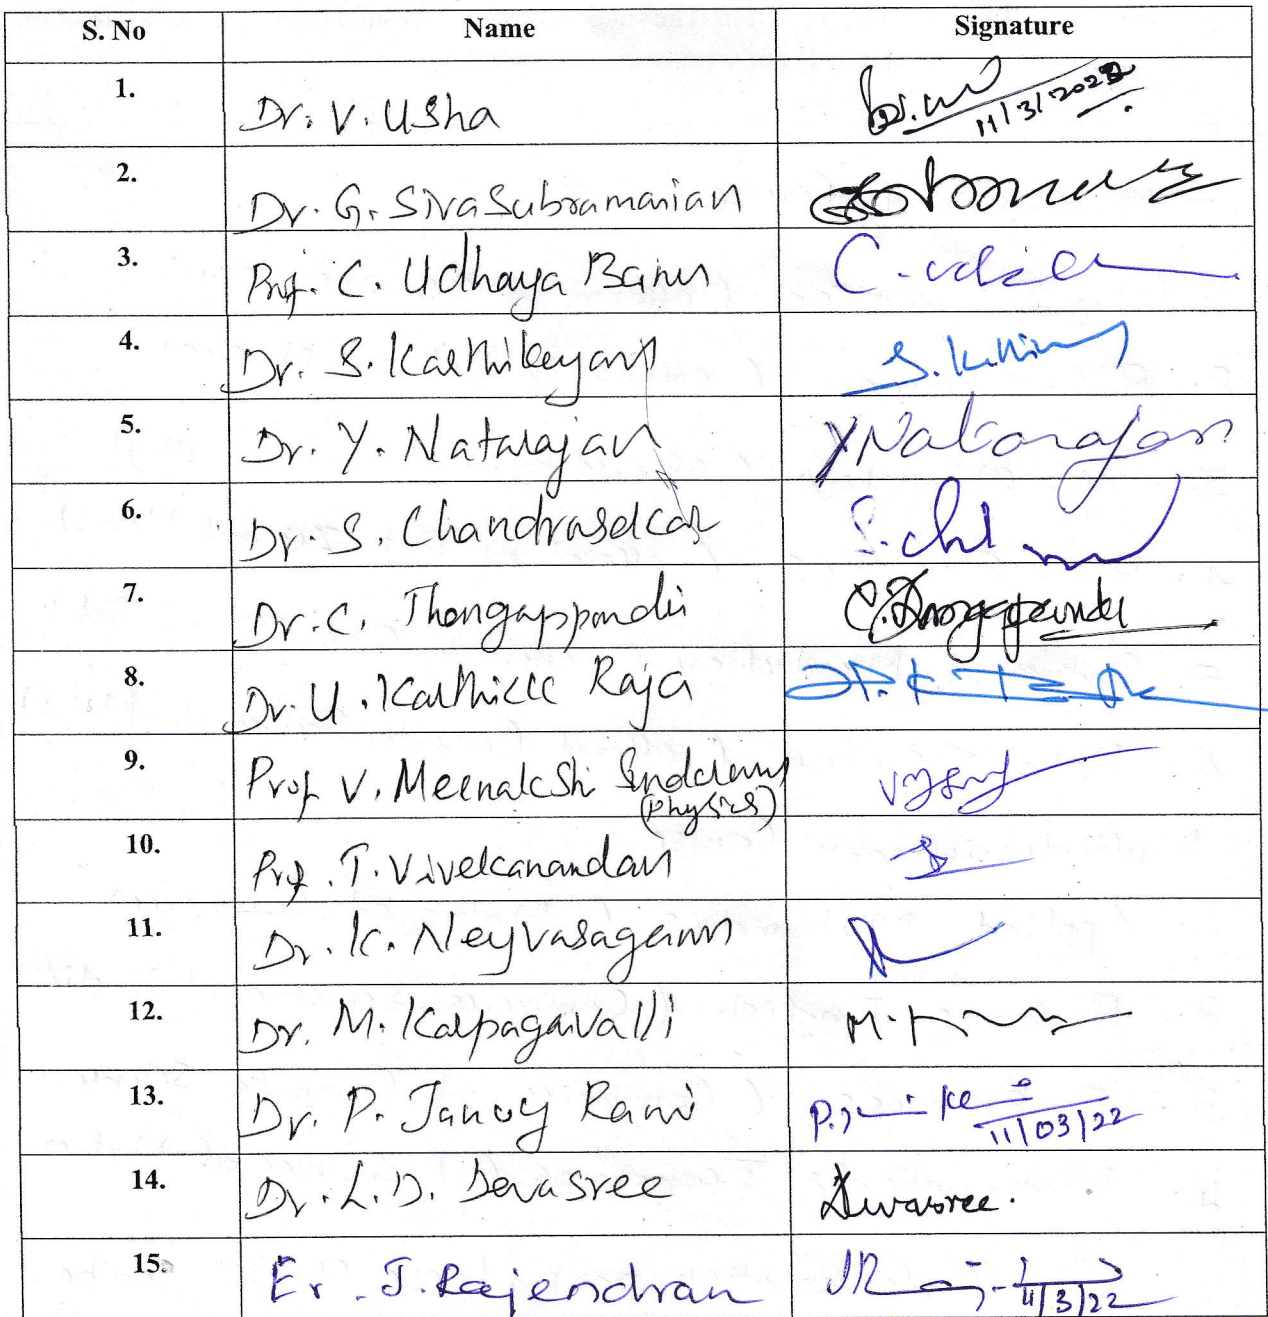 S. No Name Signature
1. Dr. V. Usha 11/3/2022
2. Dr. G. Sivasubramanian
3. Prof. C. Udhaya Banu C. 
4. Dr. S. Karthikeyan S.
5. Dr. Y. Natarajan Y Natarajan
6. Dr. S. Chandrasekar S.
7. Dr. C. Thangappandi C. Thangapandi
8. Dr. U. Karthick Raja
9. Prof V. Meenakshi Sundaram
(Physics)
10. Prof. T. Vivekanandan
11. Dr. K. Neyvasagam
12. Dr. M. Kalpagavalli M.
13. Dr. P. Jancy Rani P.
11/03/22
14. Dr. L. D. Devasree Devasree.
15. Er. J. Rajendran
11/3/22